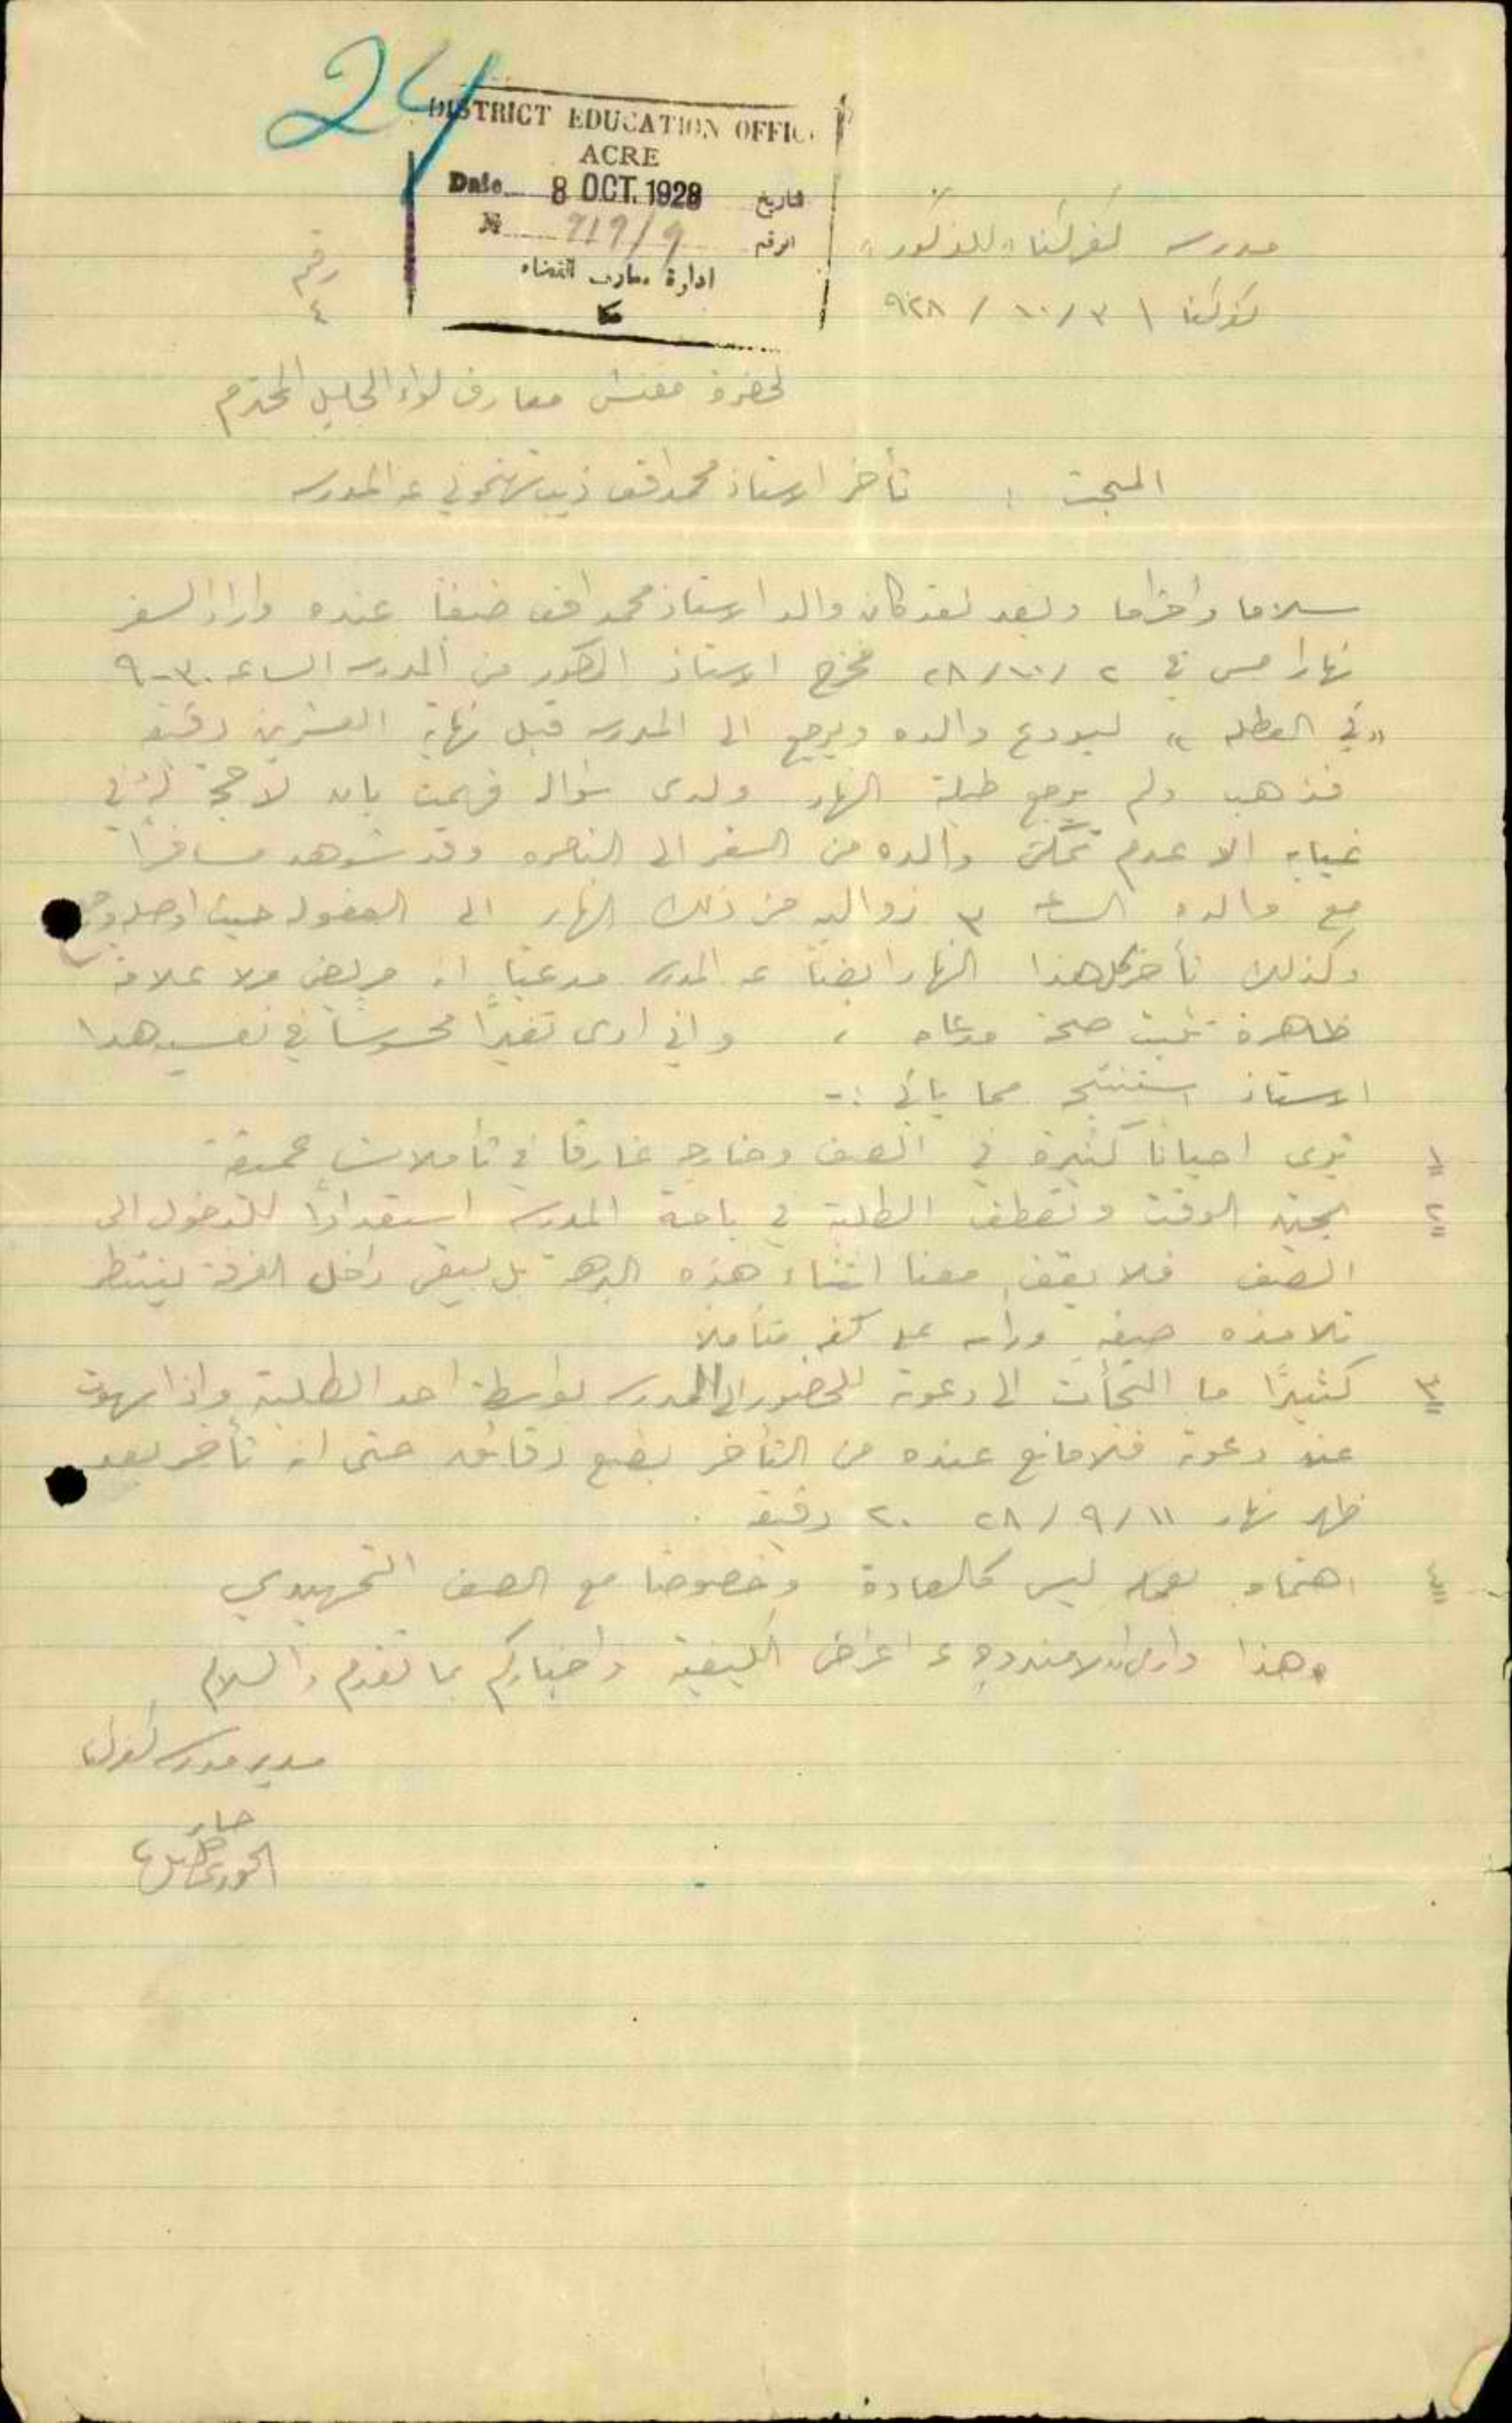 24
DISTRICT EDUCATION OFFIC
ACRE
Date 8 OCT. 1928 تاريخ
№ 919/9 الرقم
ادارة معارف القضاء
عكا
رقم
٤
مدرسة كفركنا «للذكور»
كفركنا ٣/١٠/٩٢٨
لحضرة مفتش معارف لواء الجليل المحترم
المبحث : تأخر الاستاذ محمد افندي عن المدرسه
سلاما واحتراما وبعد لقد كان والد الاستاذ محمد افندي ضيفا عنده واراد السفر
نهار امس في ٢/١٠/٢٨ فخرج الاستاذ المذكور من المدرسه الساعه ٩-٣٠
«في العطله» ليودع والده ويرجع الى المدرسه قبل نهاية العشرين دقيقه
فذهب ولم يرجع طيلة النهار ولدى سؤال فهمت بانه لا حجة له في
غيابه الا عدم تمكن والده من السفر الى الناصره وقد شوهد مسافرًا
مع والده الساعه ٣ زواليه من ذلك النهار الى العفوله حيث اوصله
وكذلك تأخر كل هذا النهار ايضًا عن المدرسه مدعيًا انه مريض ولا علامة
ظاهرة تثبت صحة مدعاه ، واني ارى تغيرًا محسوسًا في نفسية هذا
الاستاذ استنتج مما يأتي :-
١ يرى احيانًا كثيرة في الصف وخارجه غارقا في تأملات عميقة
٢ يجيئ الوقت وتصطف الطلبة في باحة المدرسه استعدادًا للدخول الى
الصف فلا يقف معنا اثناء هذه البرهة بل يبقى داخل الغرفة ينتظر
تلامذه صفه ورأسه على كفه متأملًا
٣ كثيرًا ما التجأت الى دعوته للحضور الى المدرسه بواسطة احد الطلبة واذا سهوت
عن دعوته فلا مانع عنده من التأخر بضع دقائق حتى انه تأخر بعد
ظهر نهار ١١/٩/٢٨ ٢٠ دقيقه .
٤ اهتمامه بعمله ليس كالعادة وخصوصًا مع الصف التمهيدي
وهذا واراني لا مندوحة عن اعراض الكيفية واخباركم بما تقدم والسلام
مدير مدرسه كفركنا
الخوري